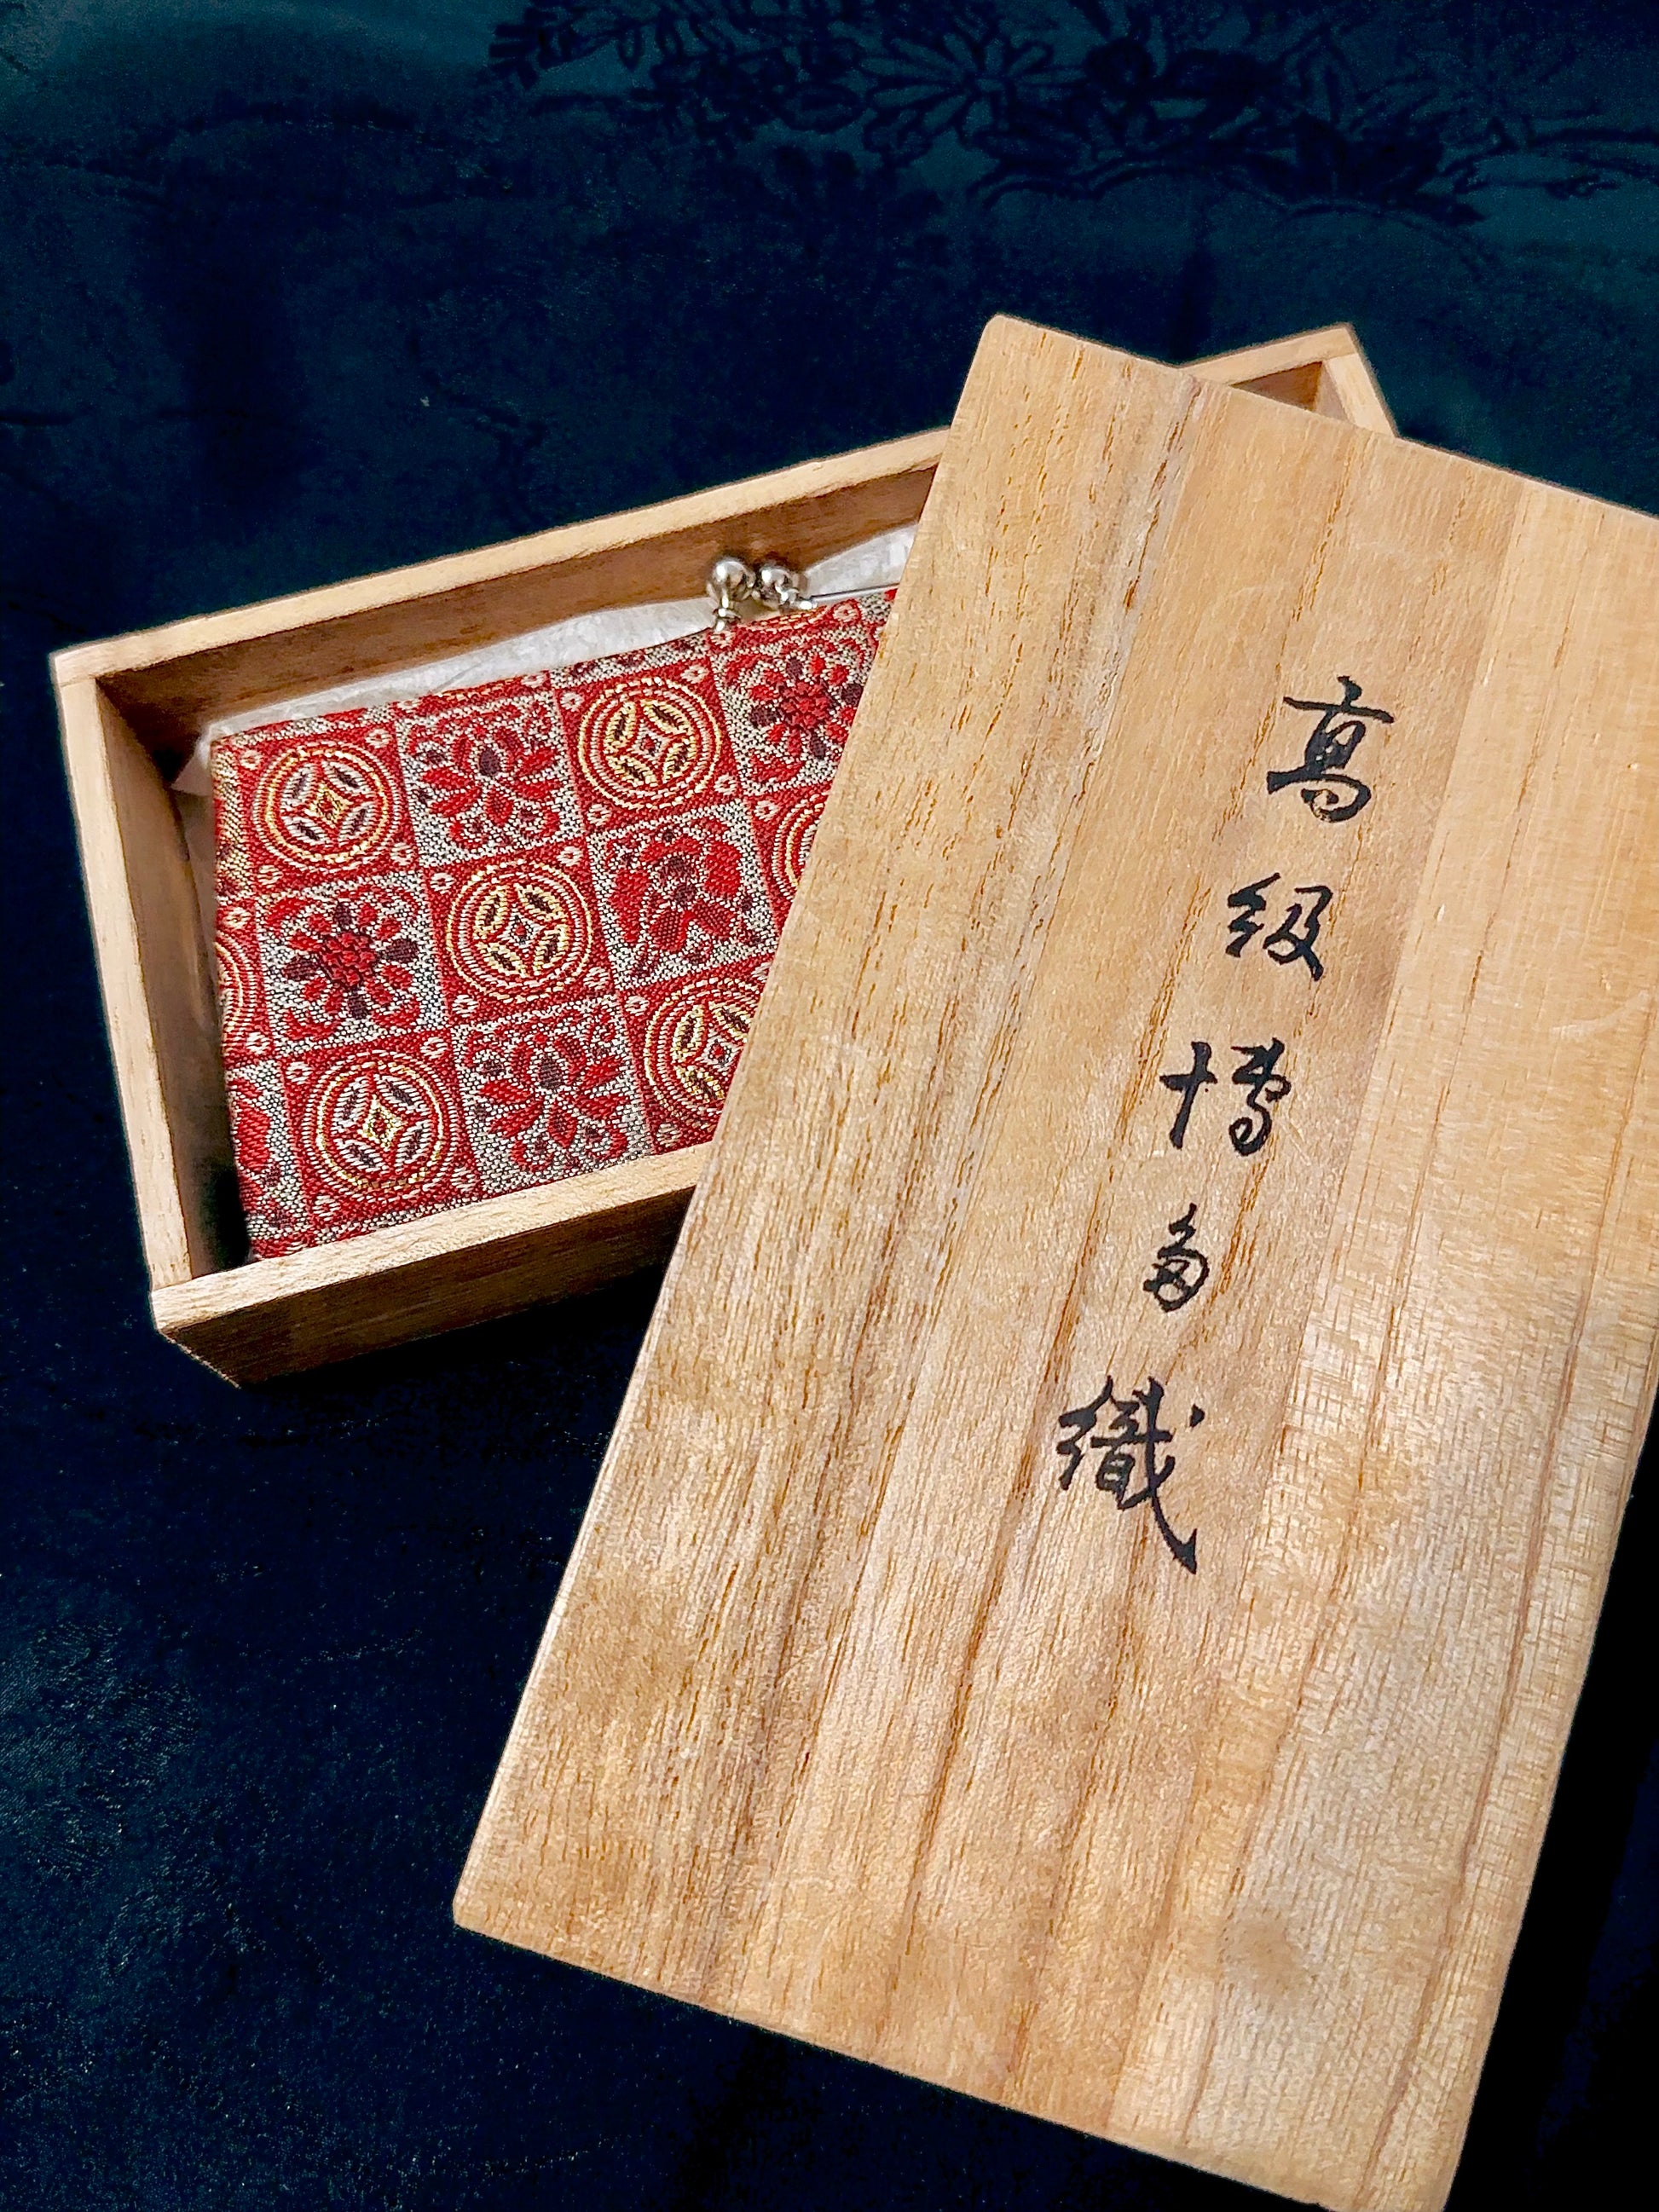 高級博多織